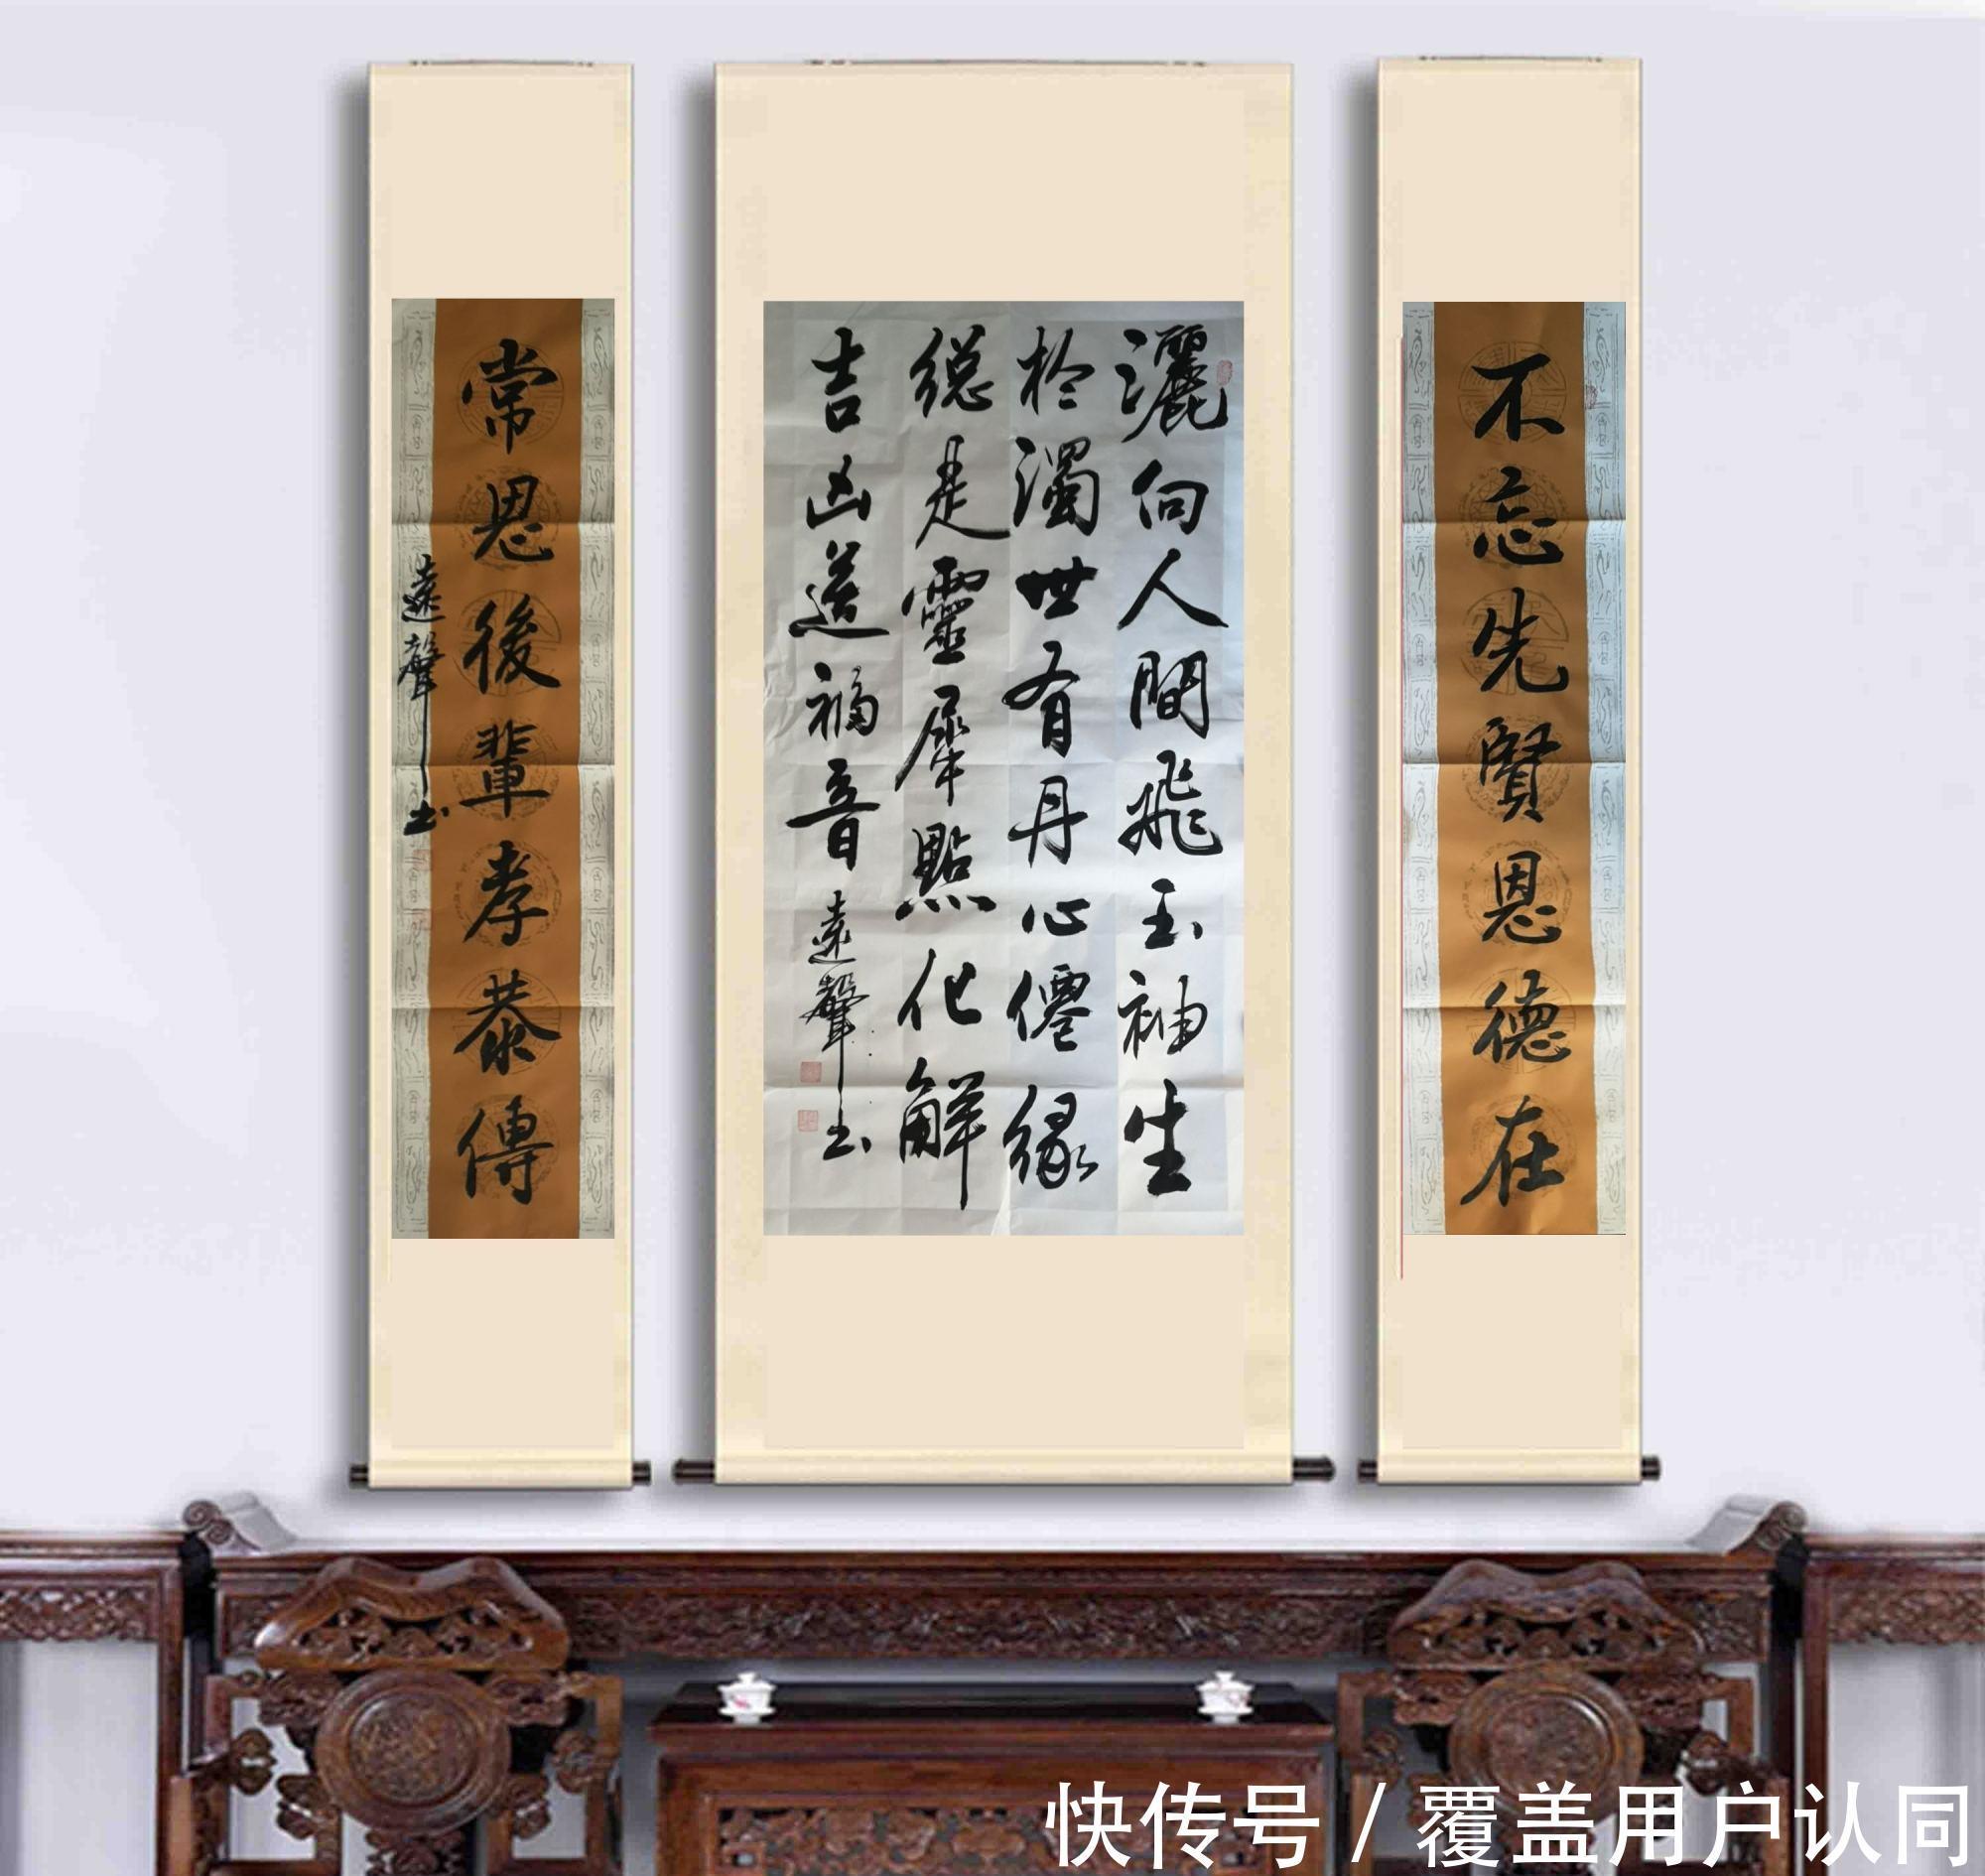 不忘先賢恩德在
灑向人間飛玉袖生
於濁世有丹心僊緣
総是靈犀點化解
吉凶送福音 遠聲书
常恩後輩孝恭傳
遠聲书
快传号 / 覆盖用户认同